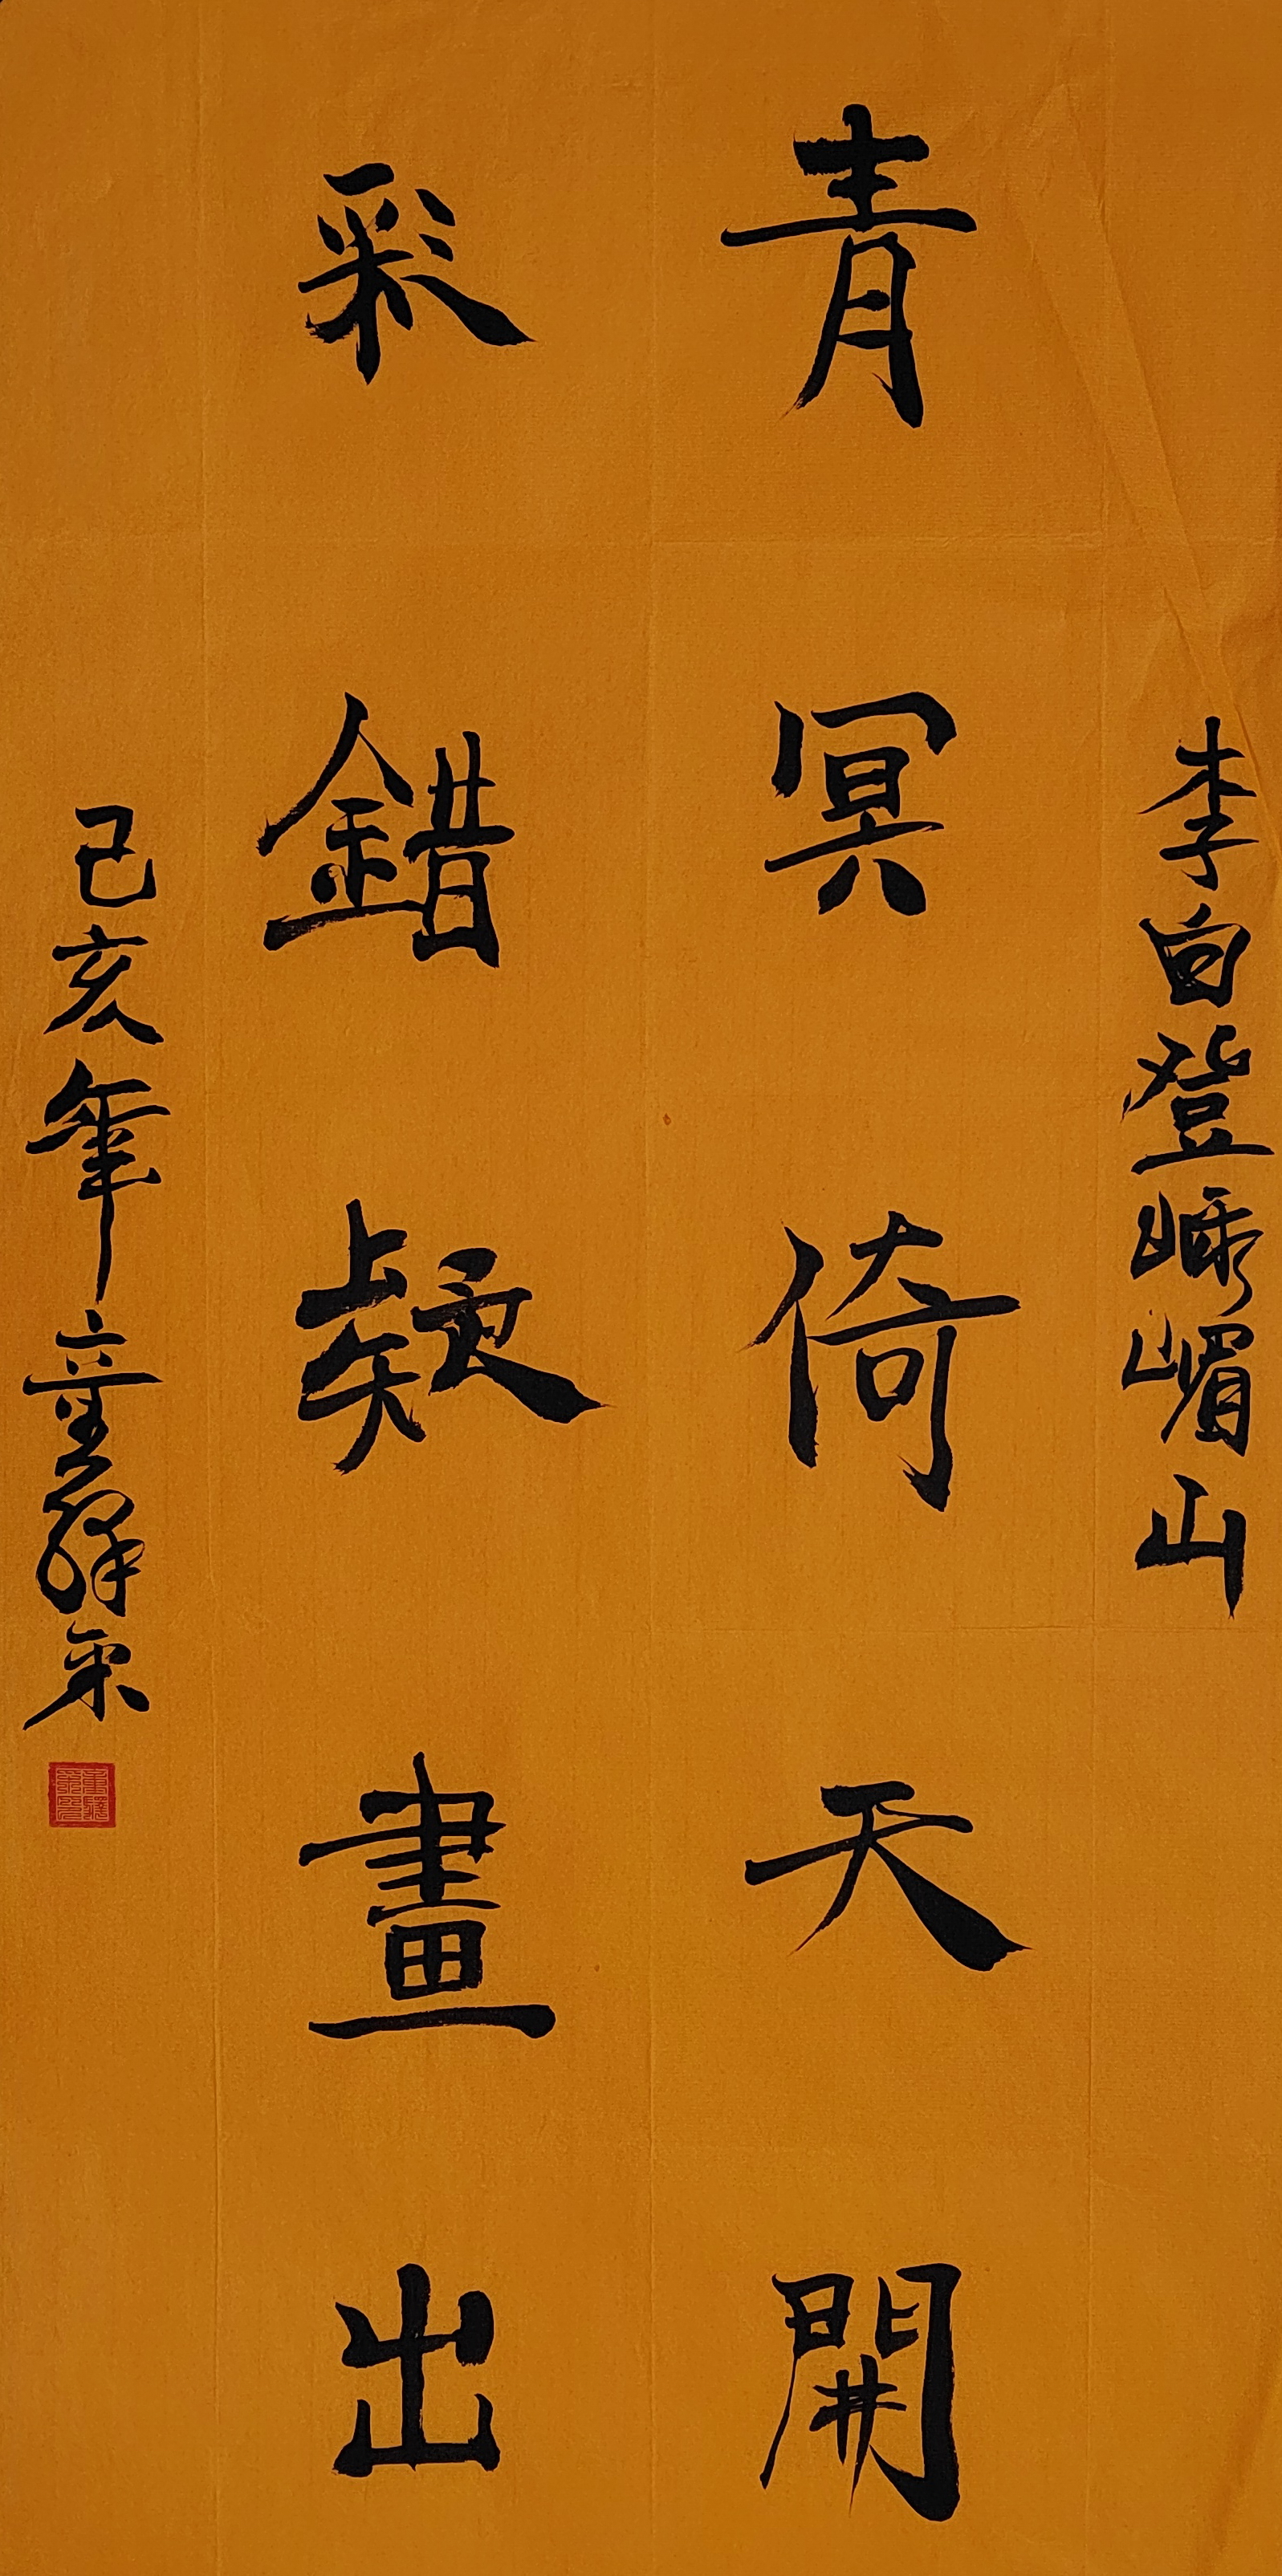 李白登峨嵋山
青冥倚天開
彩錯疑畫出
己亥年童